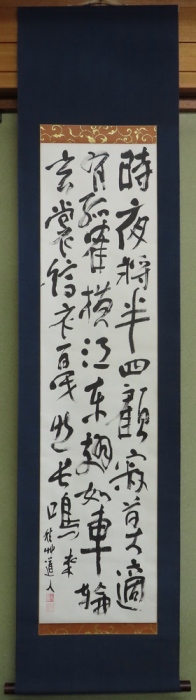 時夜將半四顧寂寥適
有孤鶴橫江東翅如車輪
玄裳縞衣戛然長鳴 來
道人